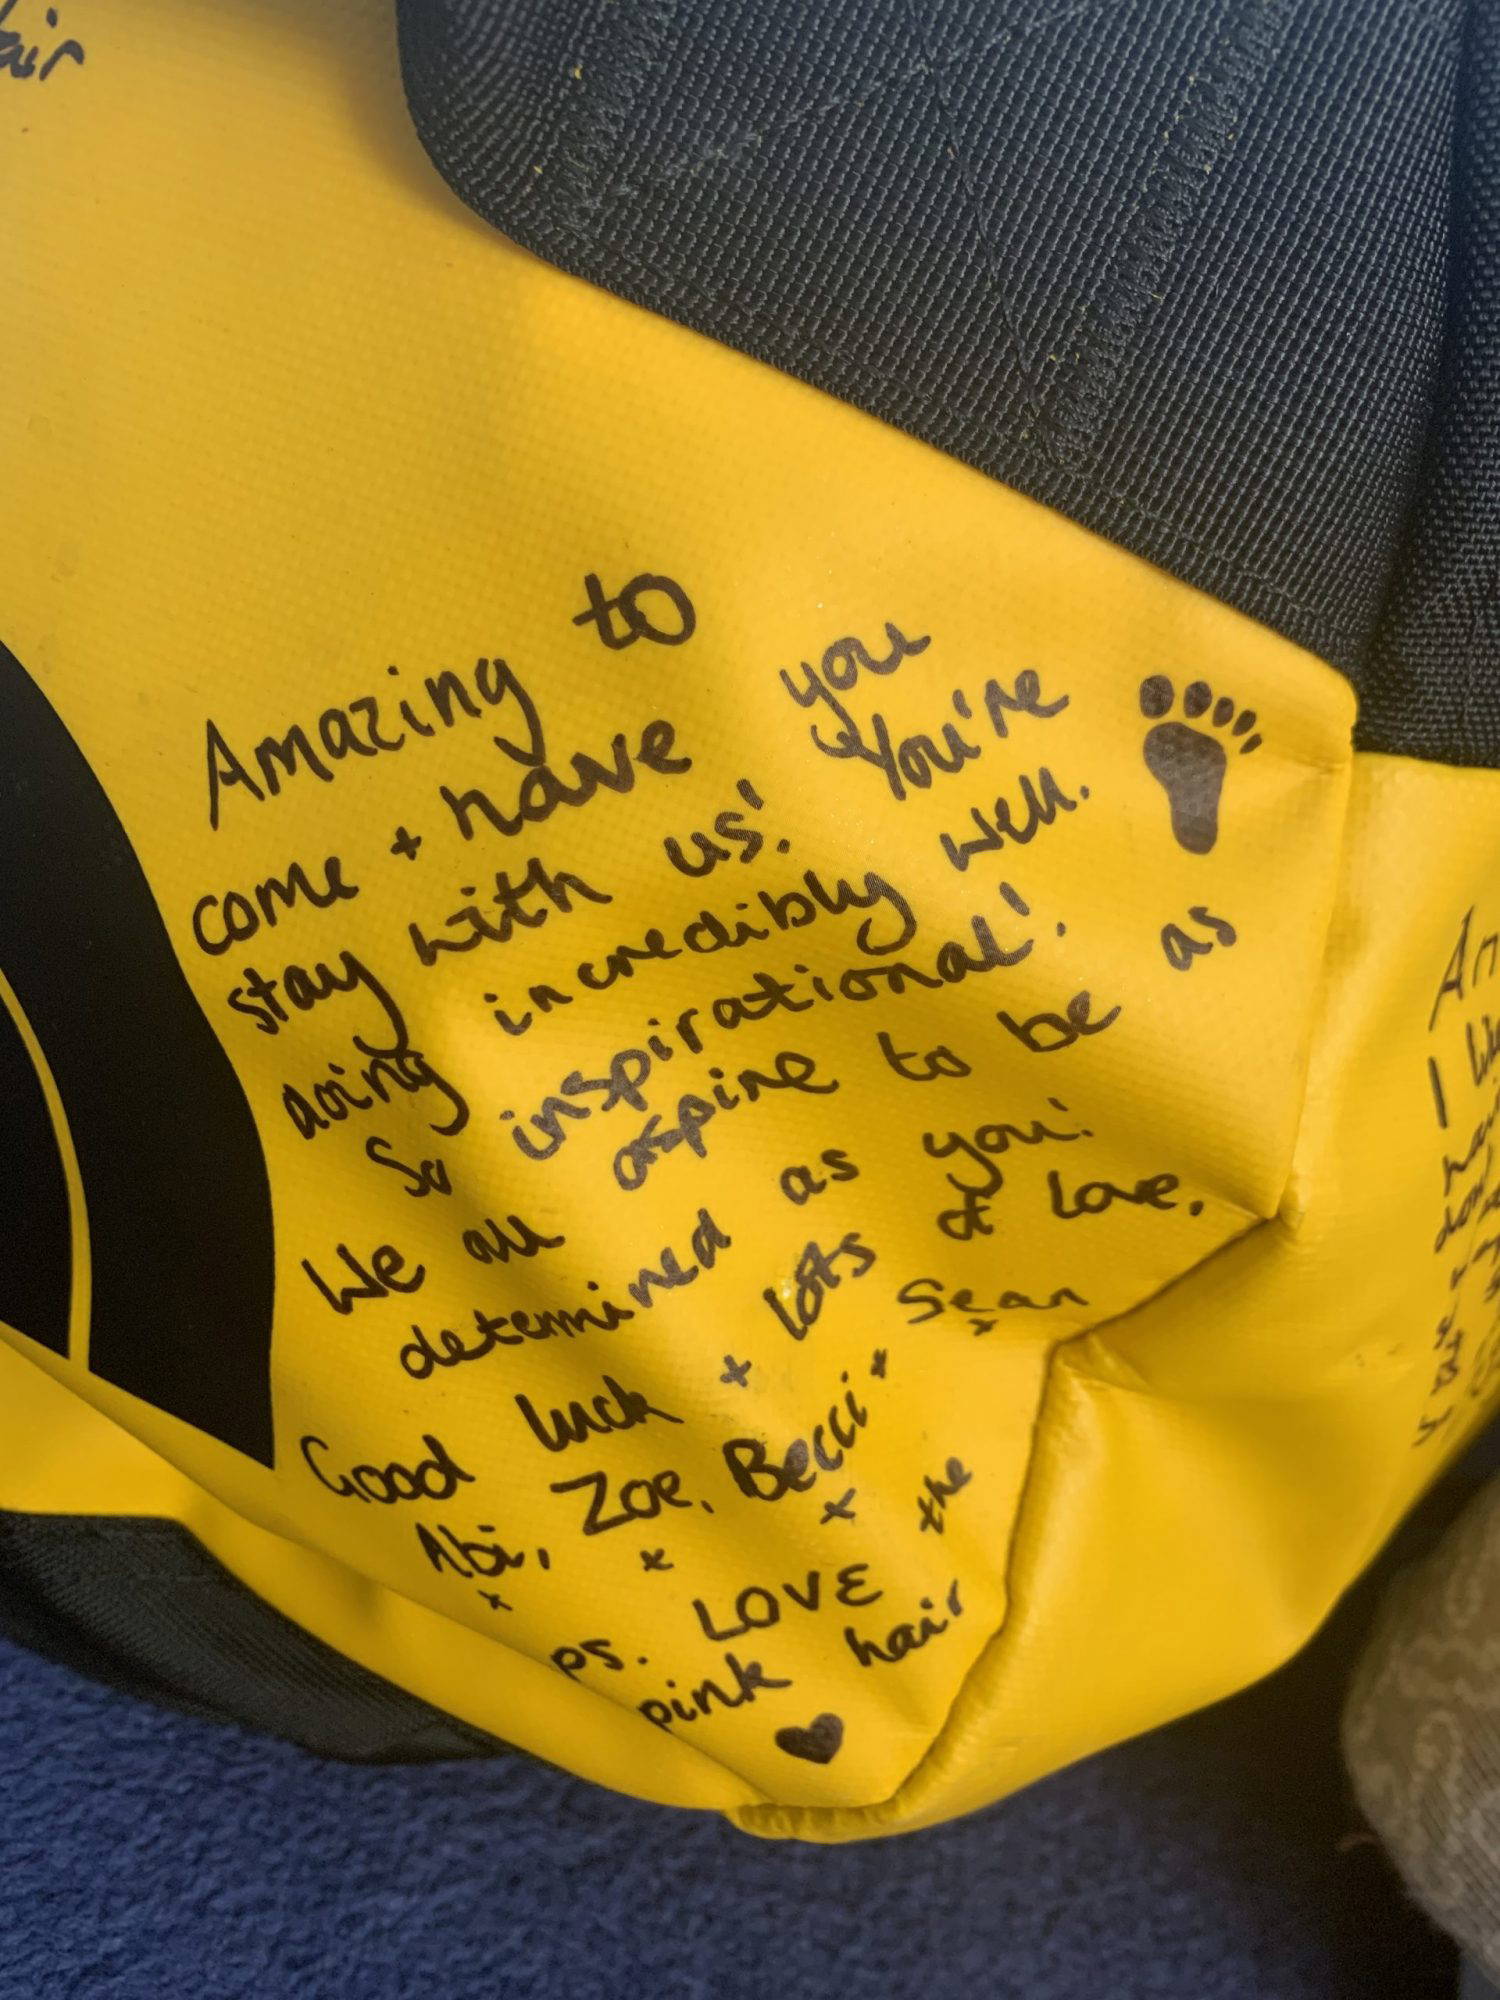 air
Amazing to
come + have you
stay with us! You're
doing incredibly well.
So inspirational!
We all aspire to be as
determined as you!
Good luck + lots of love.
Abi, Zoe, Becci Sean
x x x x x
ps. LOVE the
pink hair
I